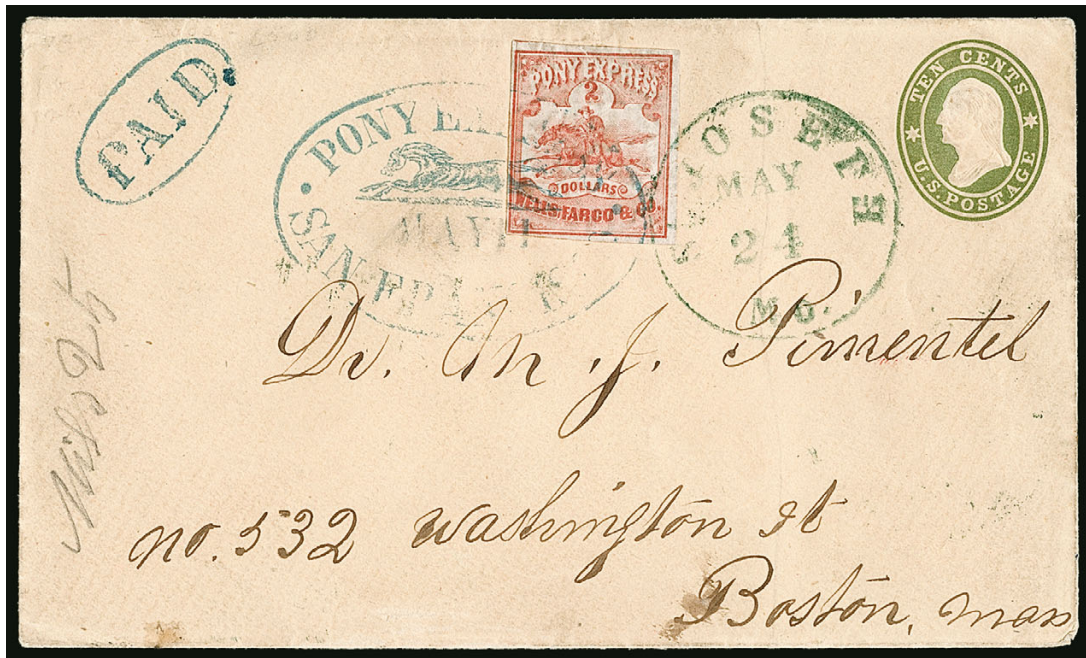 PAID.
PONY EX
MAY 11
SAN FR
PONY EXPRESS
2
DOLLARS
WELLS, FARGO & CO.
ST JOSEPH
MAY
24
Mo.
TEN CENTS
U.S. POSTAGE
Dr. M. J. Pimentel
no. 532 Washington st
Boston, mass